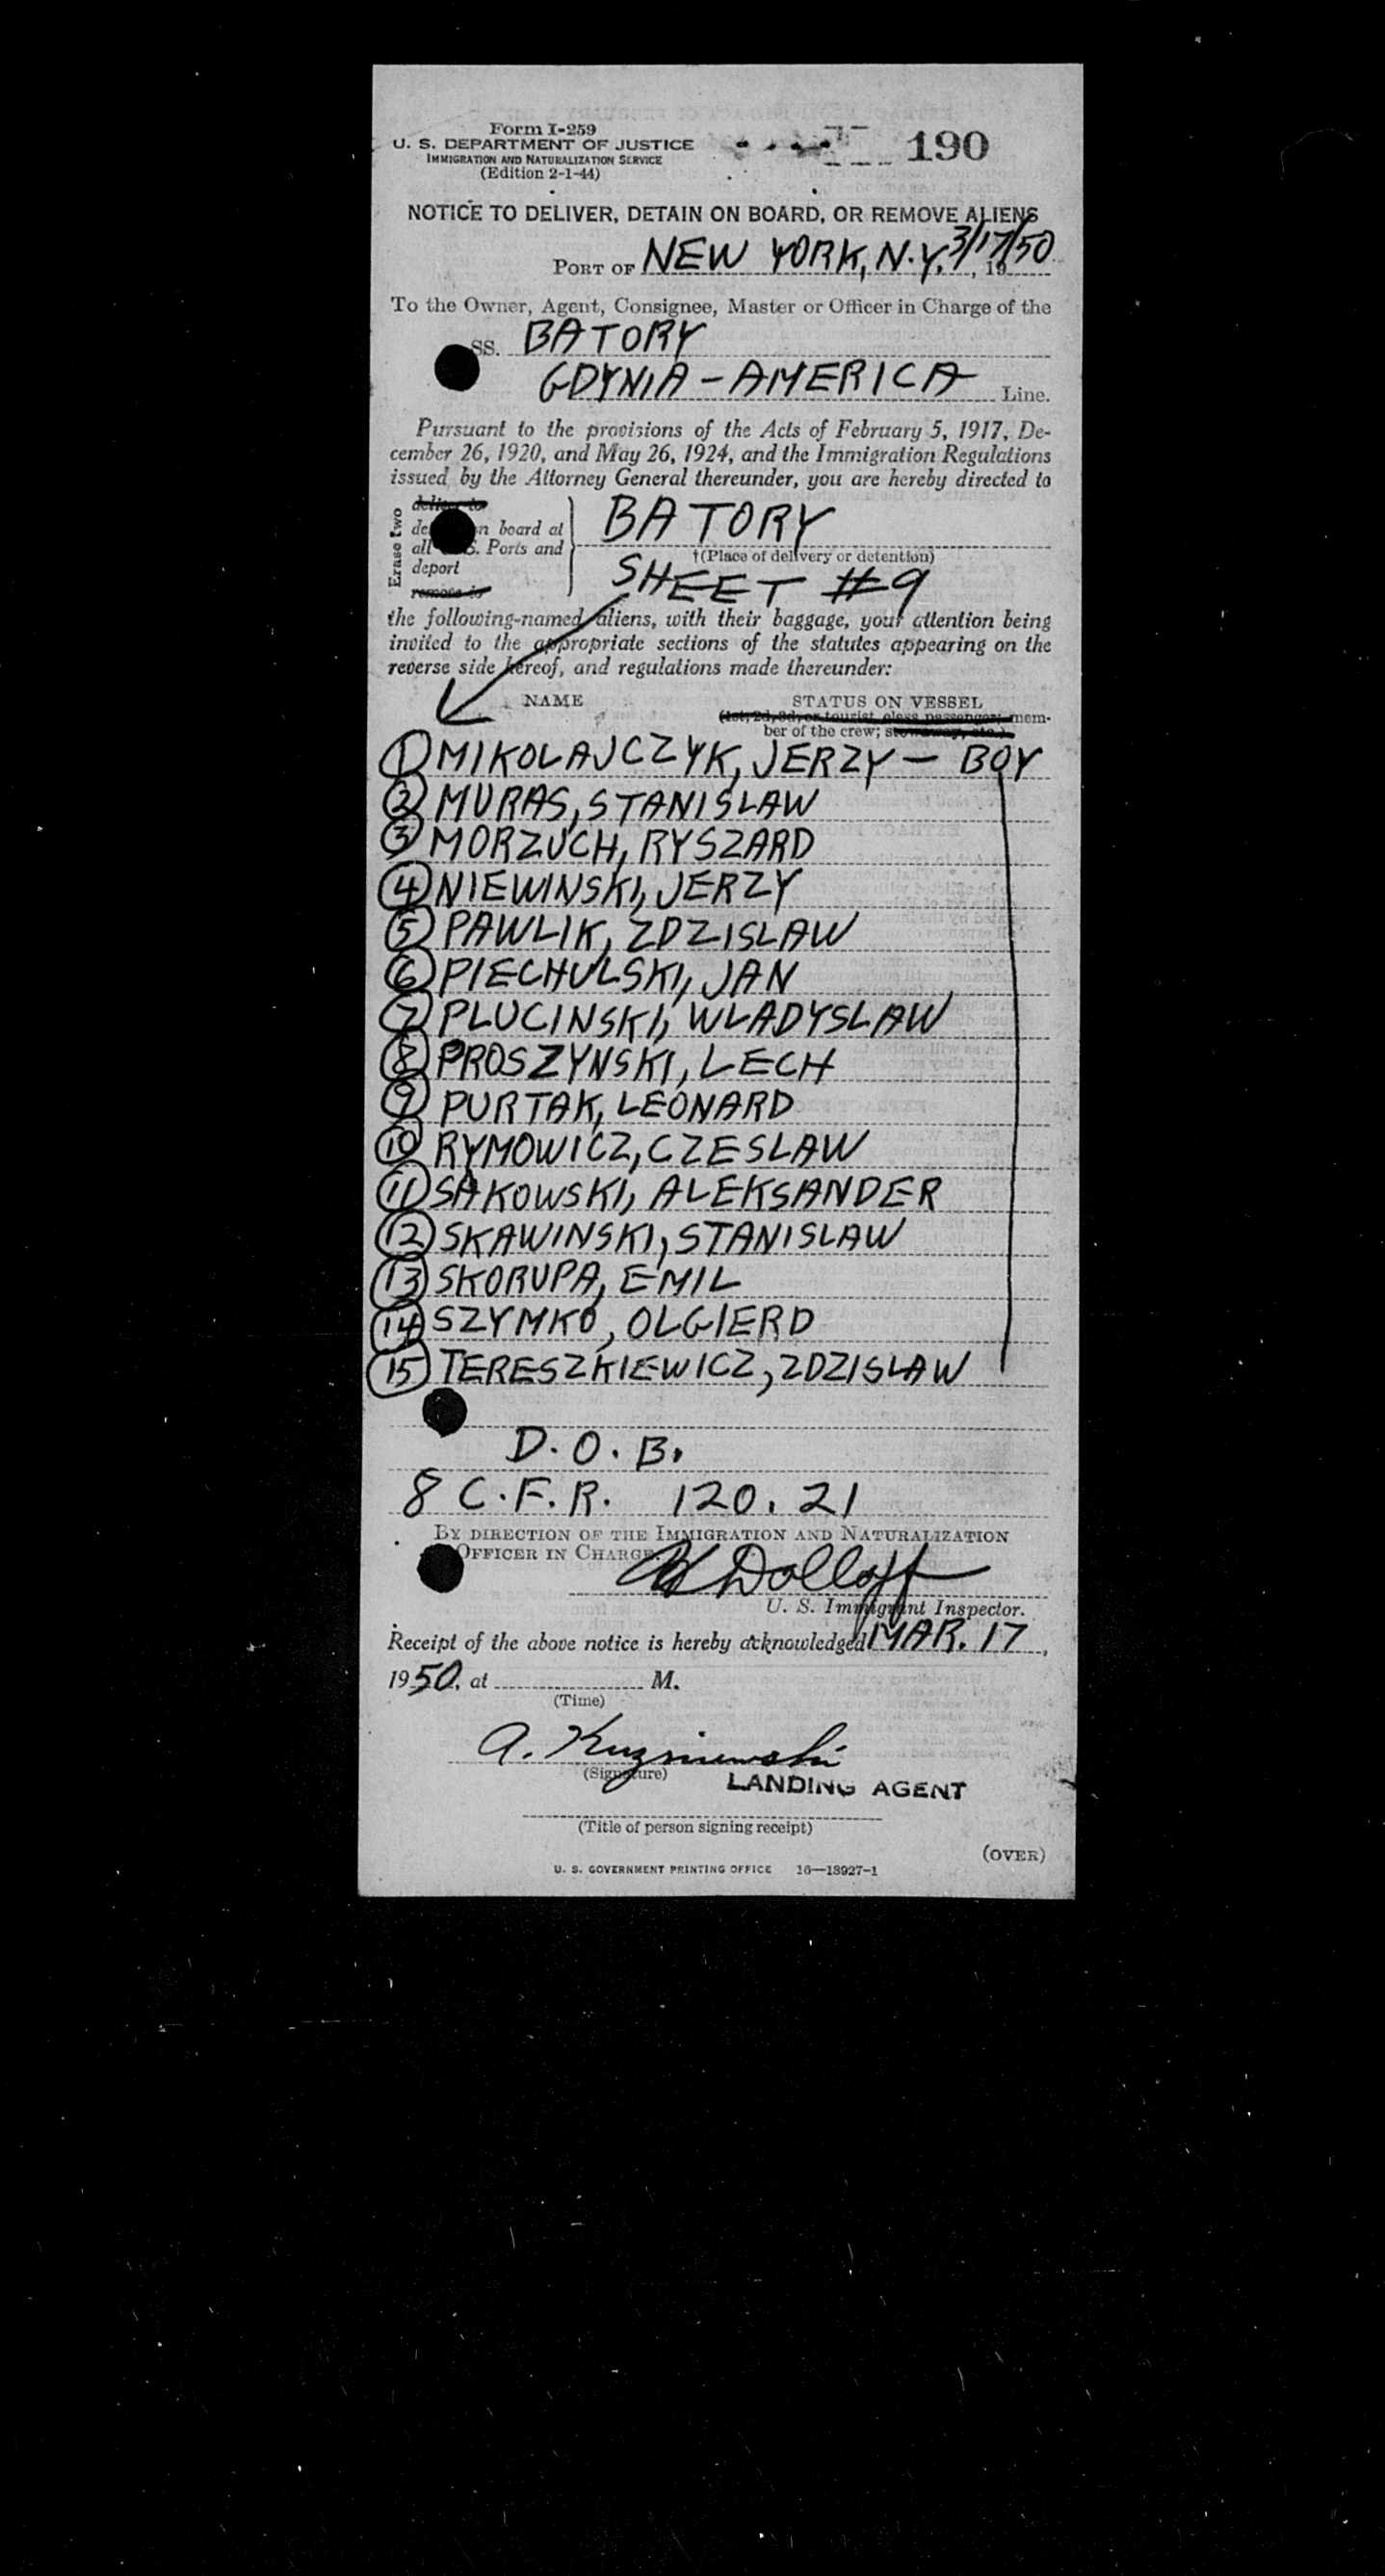 Form I-259
U. S. DEPARTMENT OF JUSTICE
IMMIGRATION AND NATURALIZATION SERVICE
(Edition 2-1-44)
190
NOTICE TO DELIVER, DETAIN ON BOARD, OR REMOVE ALIENS
PORT OF NEW YORK, N.Y. 3/17/50, 19
To the Owner, Agent, Consignee, Master or Officer in Charge of the
SS. BATORY
GDYNIA - AMERICA Line.
Pursuant to the provisions of the Acts of February 5, 1917, De-
cember 26, 1920, and May 26, 1924, and the Immigration Regulations
issued by the Attorney General thereunder, you are hereby directed to
Erase two
deliver to
n board at BATORY
all S. Ports and †(Place of delivery or detention)
deport SHEET #9
remove to
the following-named aliens, with their baggage, your attention being
invited to the appropriate sections of the statutes appearing on the
reverse side hereof, and regulations made thereunder:
NAME STATUS ON VESSEL
(1st, 2d, 3d, or tourist class passenger; mem-
ber of the crew; stowaway, etc.)
1 MIKOLAJCZYK, JERZY - BOY
2 MURAS, STANISLAW
3 MORZUCH, RYSZARD
4 NIEWINSKI, JERZY
5 PAWLIK, ZDZISLAW
6 PIECHULSKI, JAN
7 PLUCINSKI, WLADYSLAW
8 PROSZYNSKI, LECH
9 PURTAK, LEONARD
10 RYMOWICZ, CZESLAW
11 SAKOWSKI, ALEKSANDER
12 SKAWINSKI, STANISLAW
13 SKORUPA, EMIL
14 SZYMKO, OLGIERD
15 TERESZKIEWICZ, ZDZISLAW
D.O.B.
8 C.F.R. 120.21
BY DIRECTION OF THE IMMIGRATION AND NATURALIZATION
OFFICER IN CHARGE.
Dolloff
U. S. Immigrant Inspector.
Receipt of the above notice is hereby acknowledged MAR. 17,
1950, at M.
(Time)
A. Kuzniewski
(Signature) LANDING AGENT
(Title of person signing receipt)
(OVER)
U. S. GOVERNMENT PRINTING OFFICE 16—13927-1